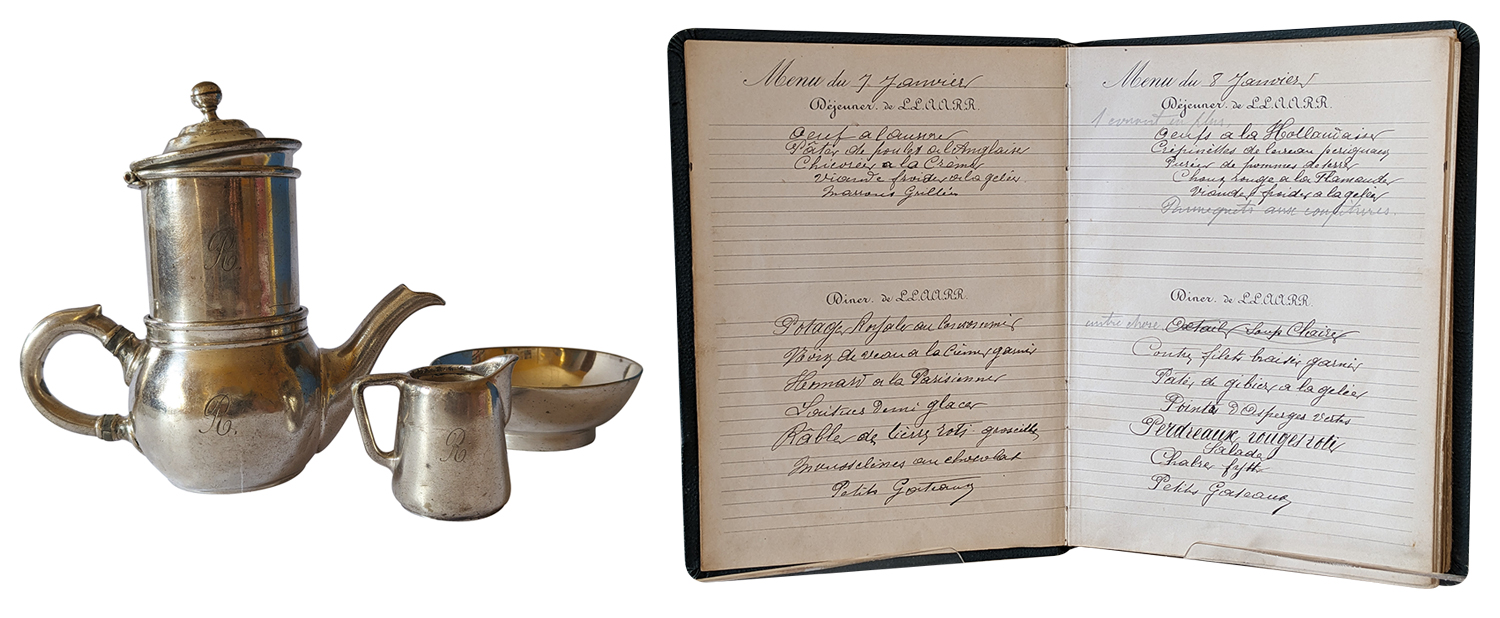 R
R.
R
Menu du 7 Janvier
Déjeuner. de LL.AA.RR.
Oeuf a l'aurore
Pâtés de poulet a l'Anglaise
Chicorée a la Crème
Viande froides a la gelée.
Marrons Grillés
Diner. de LL.AA.RR.
Potage Royale au Consommé
Noix de veau a la Crème garnis
Homard a la Parisienne
Laitues Demi glacer
Rable de lièvre roti groseille
Mousselines au chocolat
Petits Gateaux
Menu du 8 Janvier
Déjeuner. de LL.AA.RR.
1 couvert en plus.
Oeufs a la Hollandaise
Crépinettes de
Purée de pommes de terre
Choux rouge a la Flamande
Viandes froides a la gelée
aux
Diner. de LL.AA.RR.
autre chose Oxtail Soup Claire
Contre filets braisés garnis
Patés de gibier a la gelée
Pointes D'Asperges Vertes
Perdreaux rouges rotis
Salade
Petits Gateaux